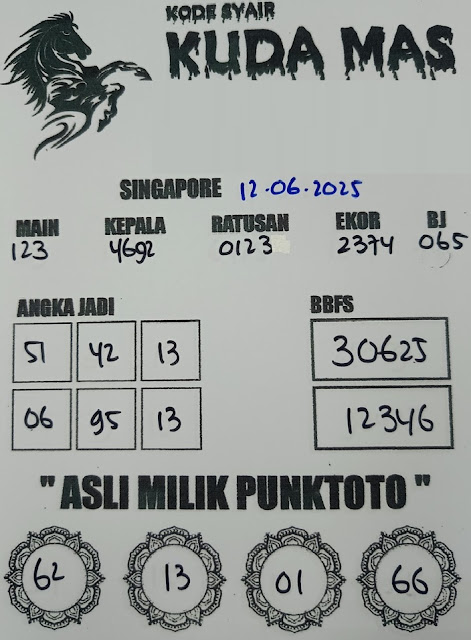 KODE SYAIR
KUDA MAS
SINGAPORE 12.06.2025
MAIN KEPALA RATUSAN EKOR BJ
123 4692 0123 2374 065
ANGKA JADI BBFS
51 42 13 30625
06 95 13 12346
"ASLI MILIK PUNKTOTO"
62 13 01 66